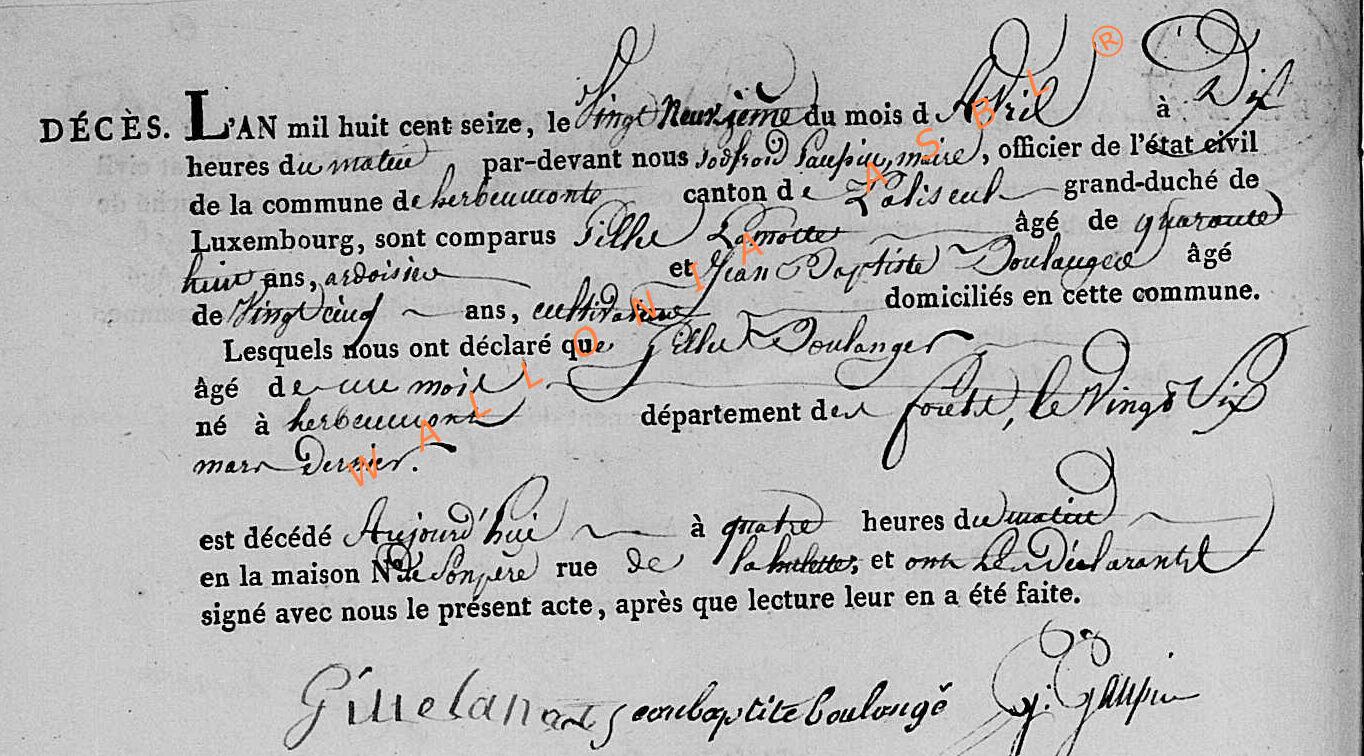 DÉCÈS. L'AN mil huit cent seize, le Vingt Neuvzième du mois d Avril à Dix
heures du matin par-devant nous Godfroid Gaupin, maire, officier de l'état civil
de la commune de herbeumonte canton de Paliseul grand-duché de
Luxembourg, sont comparus Gille Lamotte âgé de quarante
huit ans, ardoisier et Jean Baptiste Boulanger âgé
de Vingt cinq ans, cultivateur domiciliés en cette commune.
Lesquels nous ont déclaré que Gille Boulanger
âgé de un mois
né à herbeumont département des forêts, le Vingt Six
mars Dernier.
est décédé Aujourd'hui à quatre heures du matin
en la maison N.° de Son père rue de et ont Les Déclarants
signé avec nous le présent acte, après que lecture leur en a été faite.
Gille Lamotte jean baptite boulangé G. Gaupin
WALLONIA ASBL ®